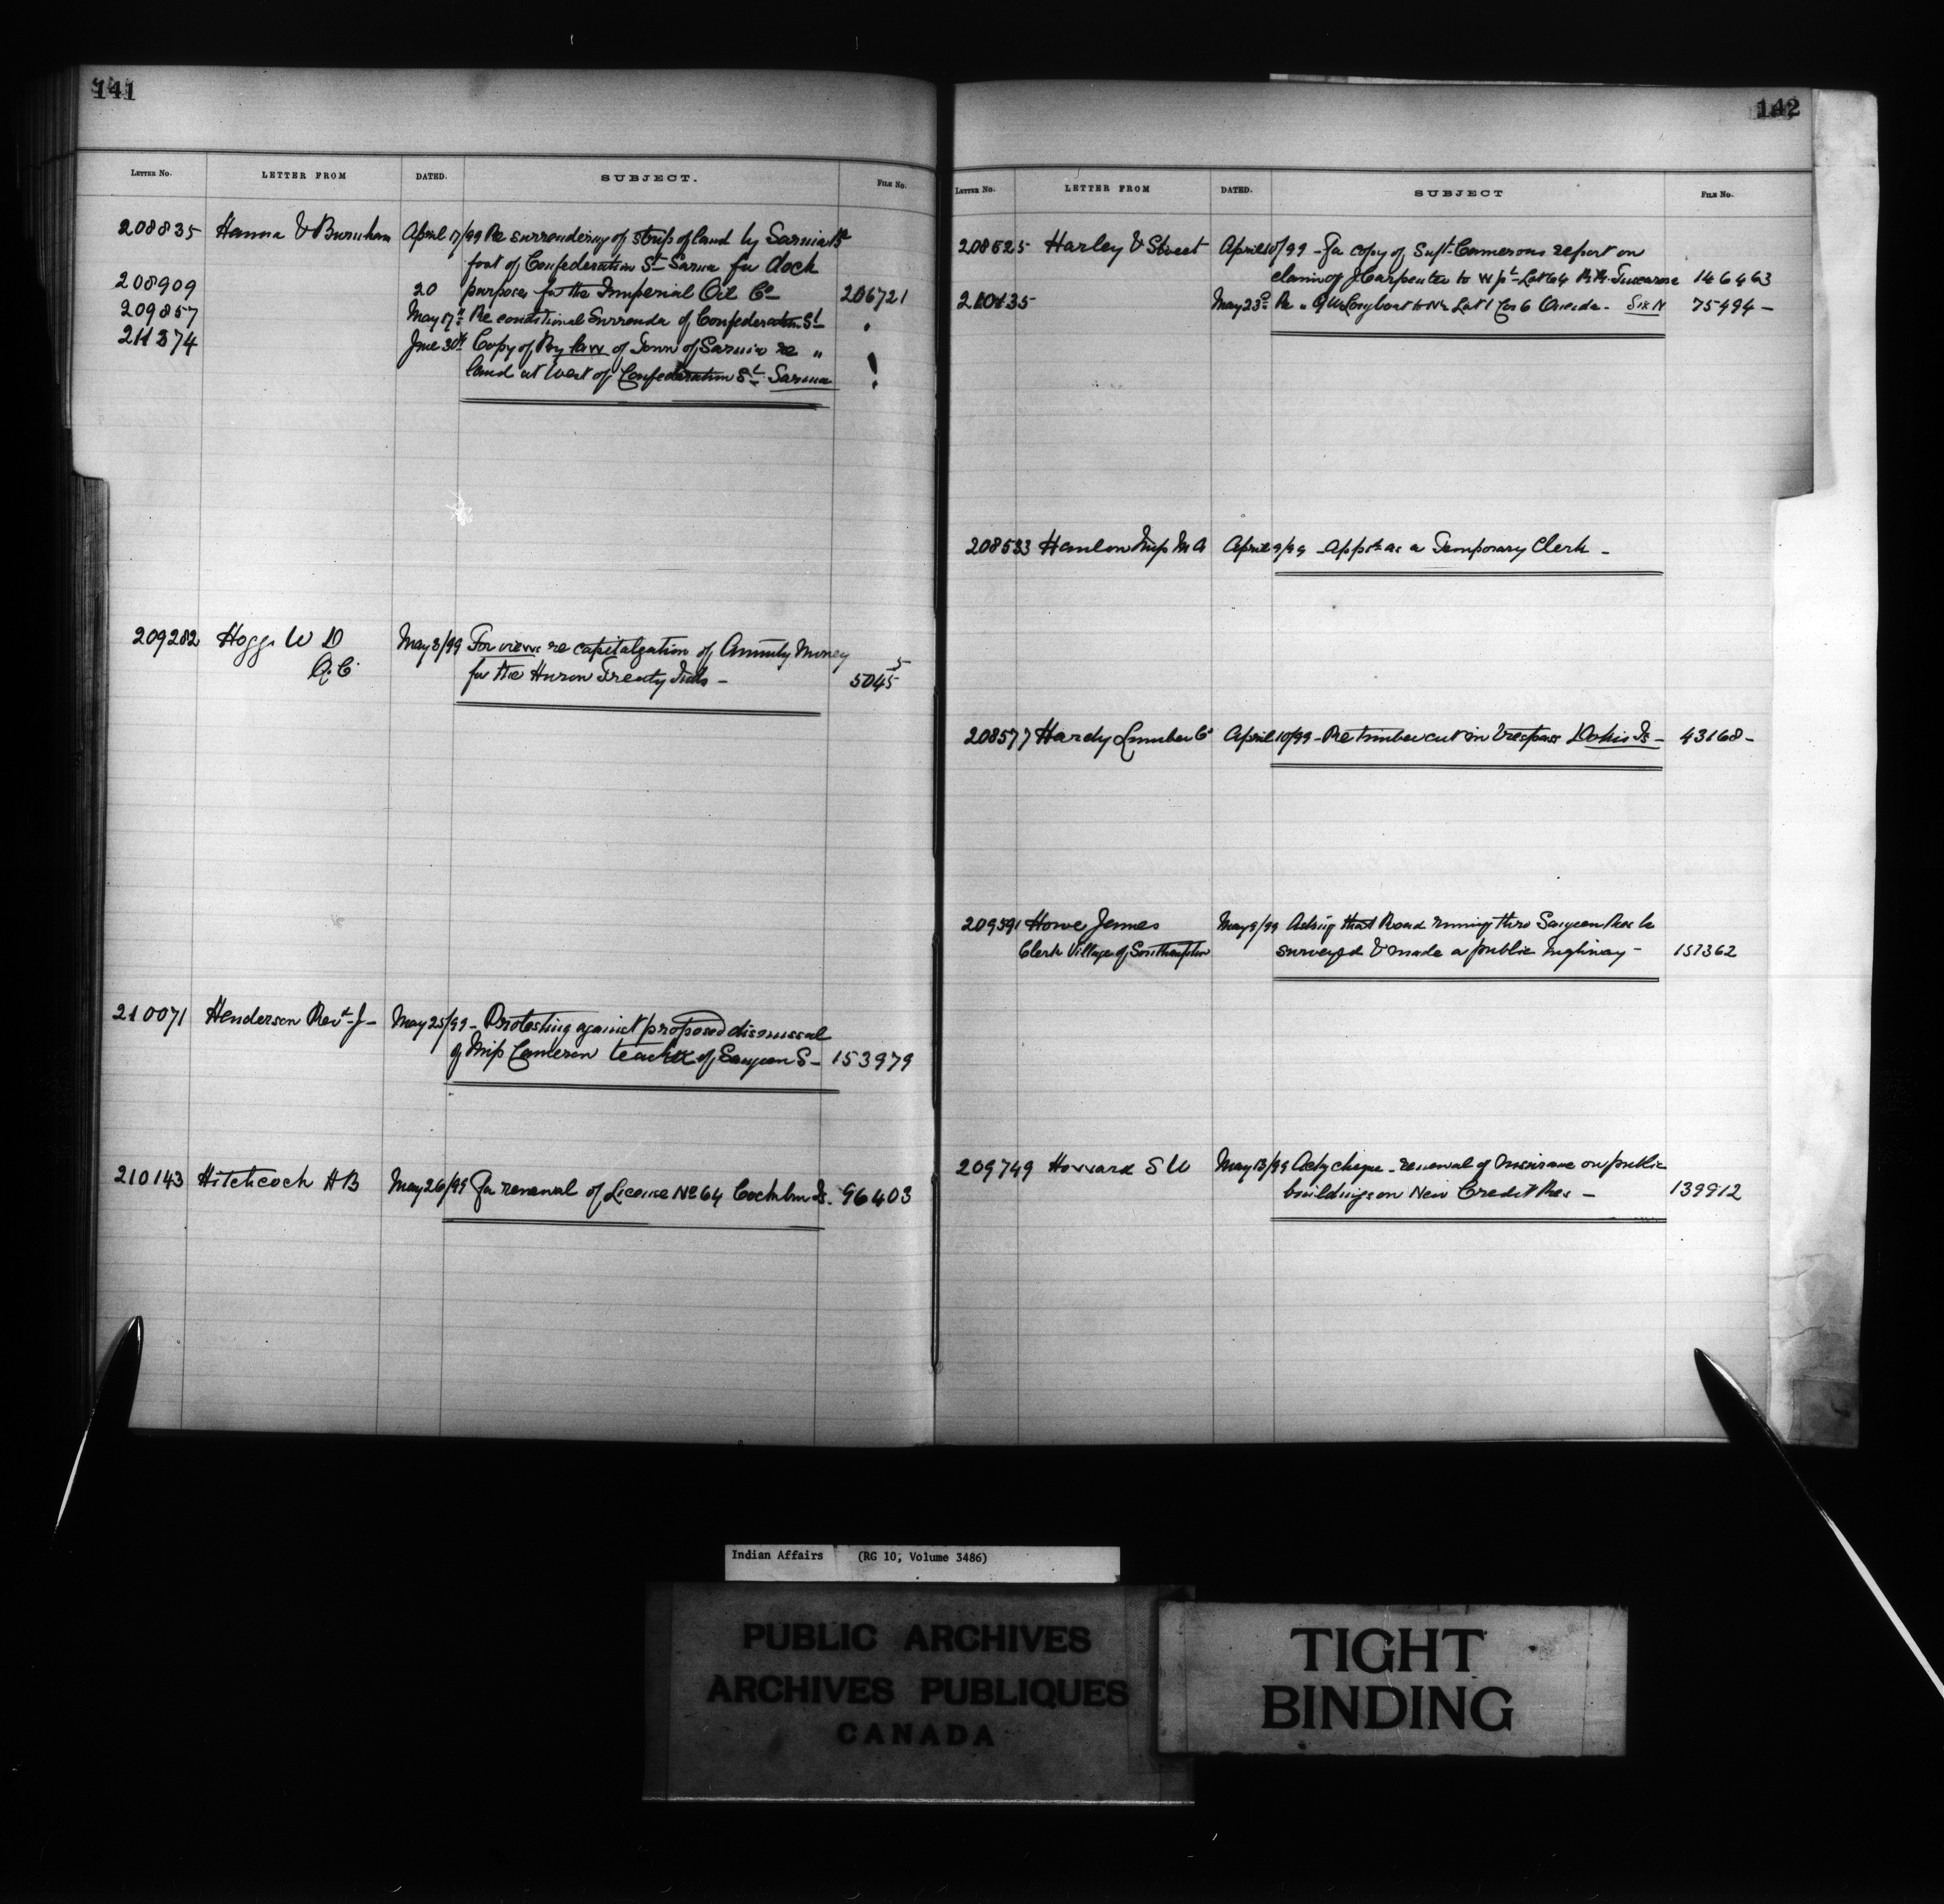 141
LETTER NO. LETTER FROM DATED. SUBJECT. FILE NO.
208835 Hanna & Burnham April 17/99 Re surrendering of strip of land by Sarnia Bd
foot of Confederation St Sarnia for dock
208909 20 purposes for the Imperial Oil Co 206721
209857 May 17th Re conditional Surrender of Confederation St "
211374 June 30th Copy of By law of Town of Sarnia re "
land at West of Confederation St Sarnia
209282 Hogg W D May 3/99 For views re capitalization of Annuity Money
Q.C. for the Huron Treaty Inds - 5045 5
210071 Henderson Revd J - May 25/99 - Protesting against proposed dismissal
of Miss Cameron teacher of Saugeen S - 153979
210143 Hitchcock H B May 26/99 For renewal of License No 64 Cockburn Is. 96403
142
LETTER NO. LETTER FROM DATED. SUBJECT FILE NO.
208525 Harley & Street April 10/99 - For copy of Supt Camerons report on
claim of J Carpenter to W pt Lot 64 R.R. Tuscarora 146463
210135 May 23d Re " Lot 1 Con 6 Oneida - Six N 75494 -
208533 Hanlon Miss M A April 9/99 - Appln as a Temporary Clerk -
208577 Hardy Lumber Co April 10/99 - Re timber cut in trespass Dokis Is - 43168 -
209391 Howe James May 9/99 Asking that Road running thro Saugeen Res be
Clerk Village of Southampton surveyed & made a public highway - 151362
209749 Howard S W May 13/99 Ackg cheque - renewal of Insurance on public
buildings on New Credit Res - 139912
Indian Affairs (RG 10, Volume 3486)
PUBLIC ARCHIVES
ARCHIVES PUBLIQUES
CANADA
TIGHT
BINDING